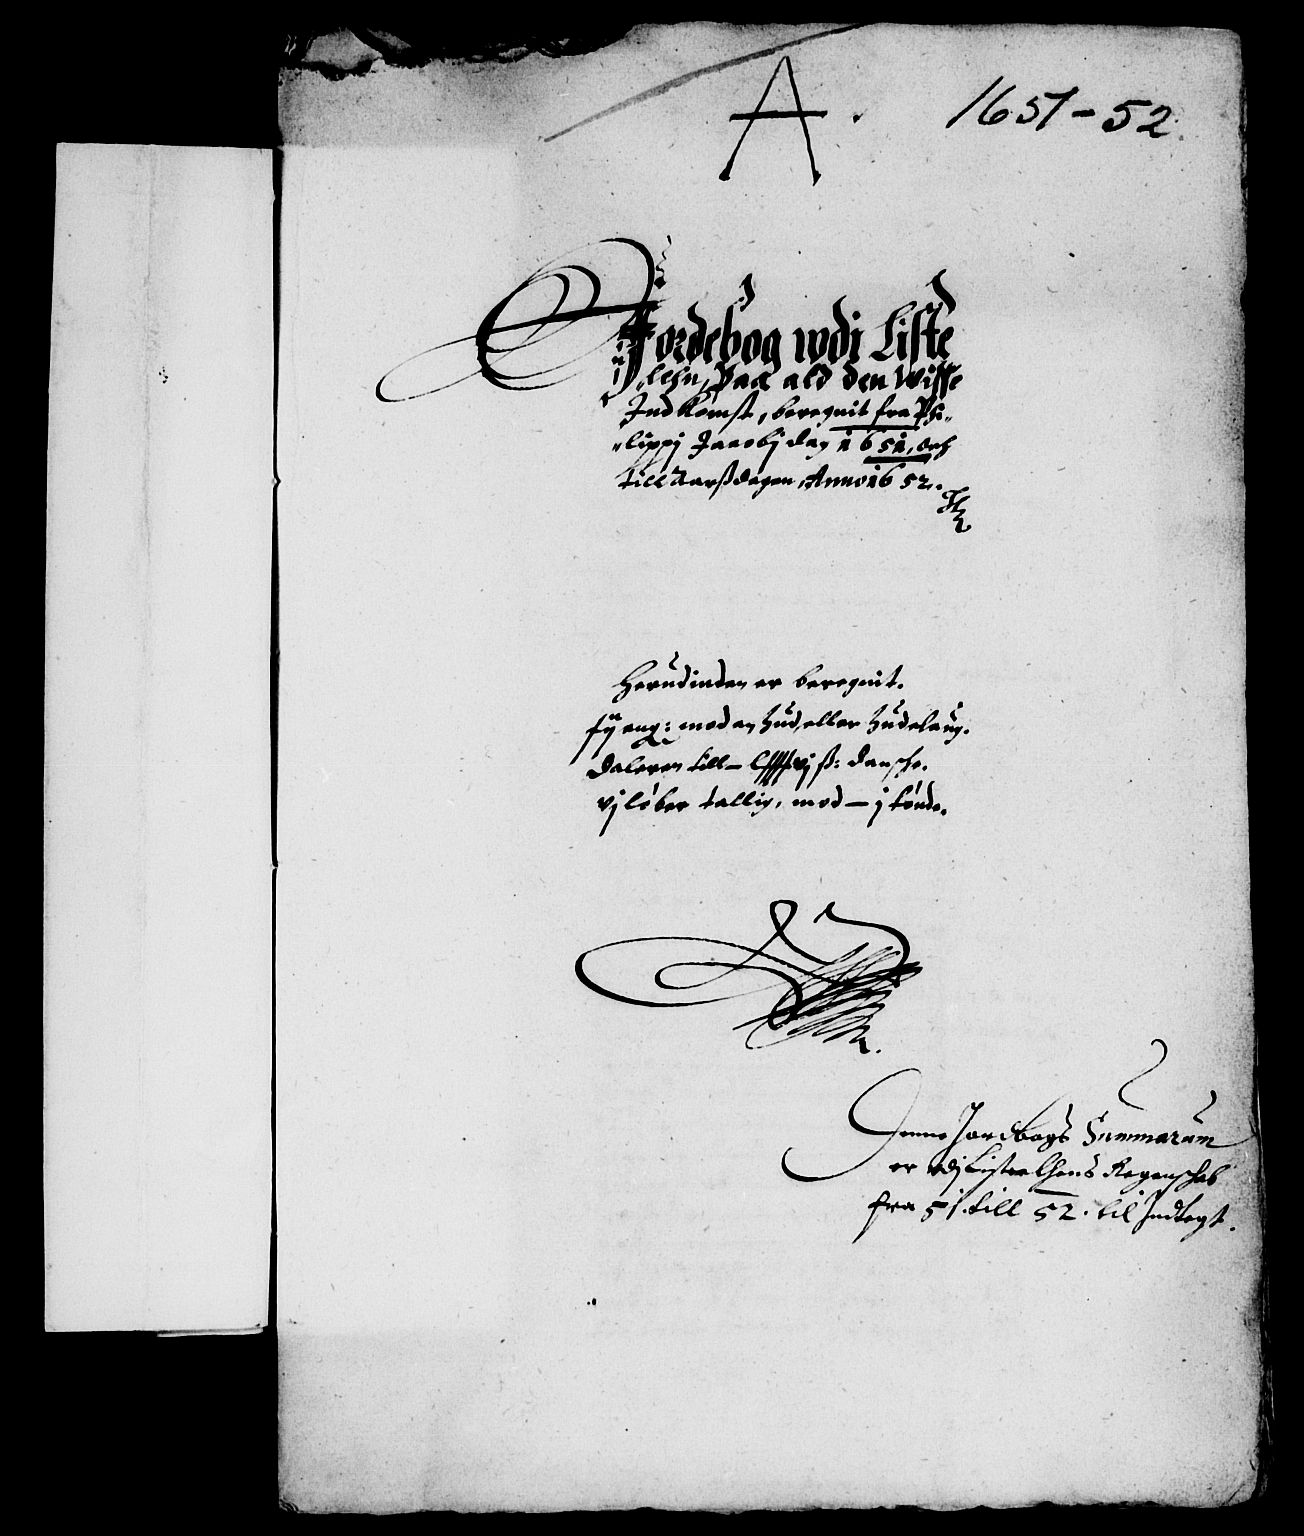 A.
1651-52.
Jordebog wdi Liste
lehn, Paa ald den Wisse
IndKomst, beregnit fra Phi„
„lippj Jacobj dag 1651, och
till Aarßdagen, Anno 1652.
Herudinden er beregnit.
mod en hud, eller hudelaug.
daleren till – ß: dansche.
vj løber tallig, mod – j tønde.
Denne Jordbogs Summarum
er vdj Listerlhens Regenschab
fra 51. till 52. til Indtegt.